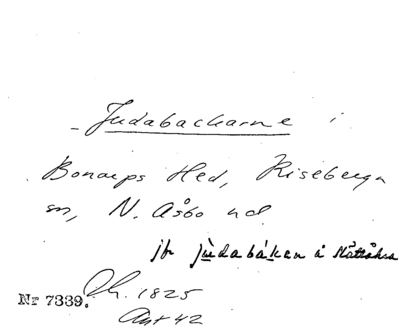 Judabackarne i
Bonarps Hed, Riseberga
sn, N. Åsbo hd
jfr jùdabákan å Nättåkra
Nr 7339. Ph. 1825
Ant 42